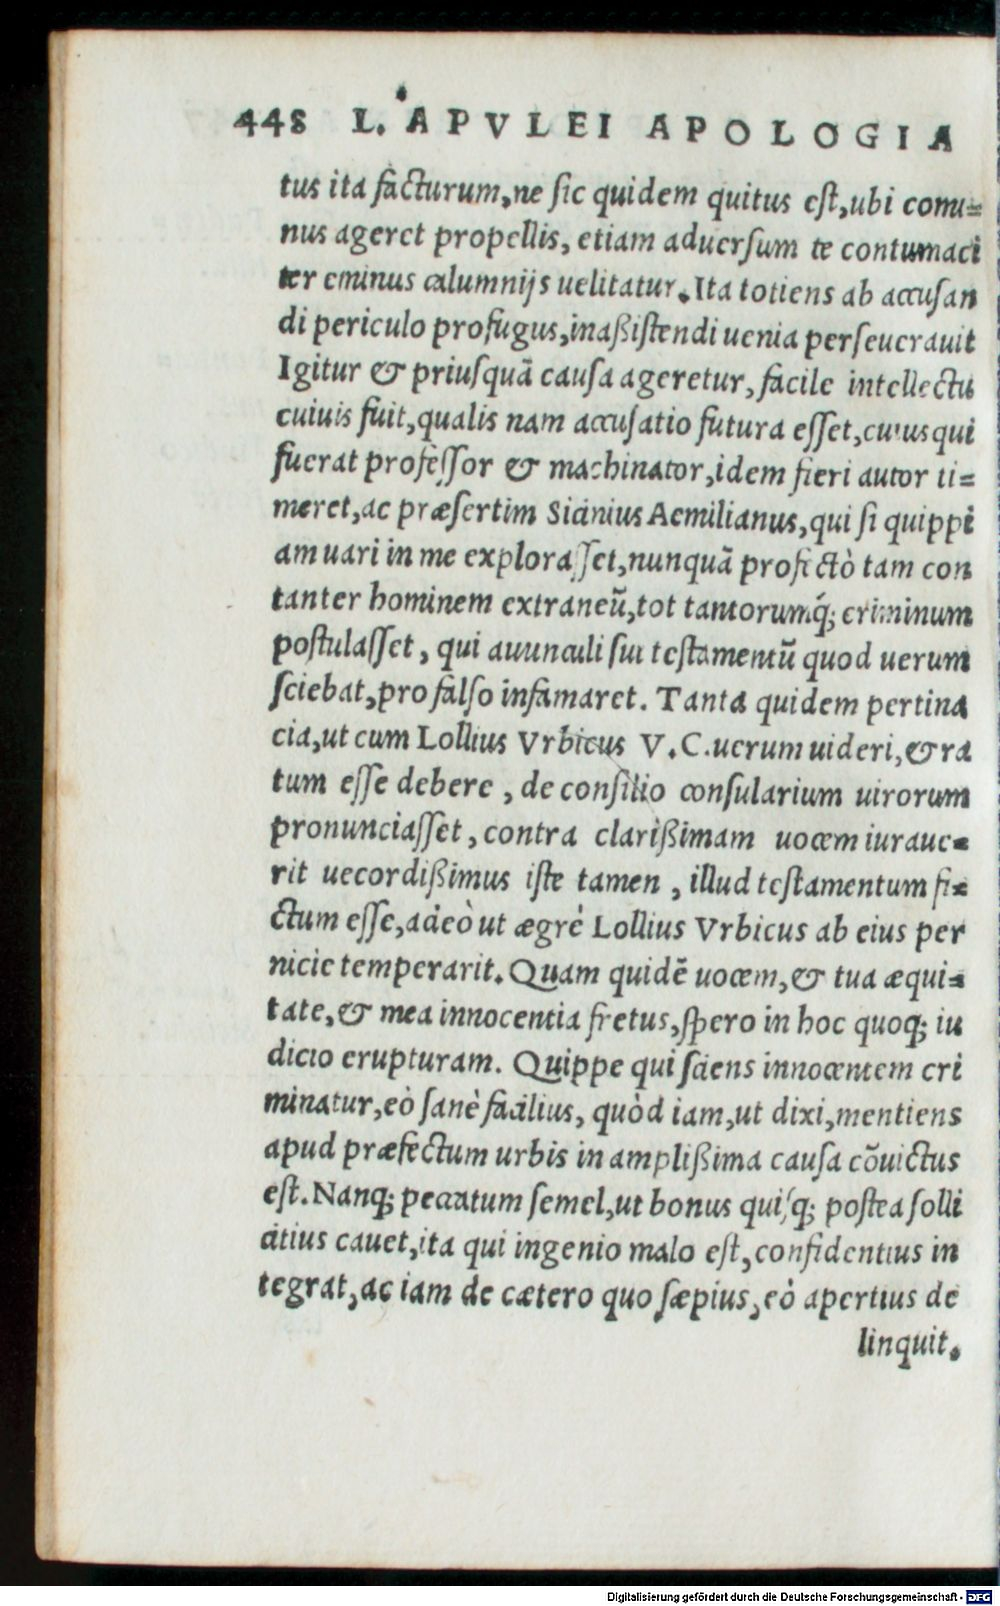 448 L. APVLEI APOLOGIA
tus ita facturum, ne sic quidem quitus est, ubi comi=
nus ageret propellis, etiam aduersum te contumaci
ter eminus calumnijs uelitatur. Ita totiens ab accusan
di periculo profugus, inaßistendi uenia perseuerauit
Igitur & priusquā causa ageretur, facile intellectu
cuiuis fuit, qualis nam accusatio futura esset, cuius qui
fuerat professor & machinator, idem fieri autor ti=
meret, ac præsertim Sicinius Aemilianus, qui si quippi
am uari in me explorasset, nunquā profectò tam con
tanter hominem extraneū, tot tantorumq́; criminum
postulasset, qui auunculi sui testamentū quod uerum
sciebat, pro falso infamaret. Tanta quidem pertina
cia, ut cum Lollius Vrbicus V.C. uerum uideri, & ra
tum esse debere, de consilio consularium uirorum
pronunciasset, contra clarißimam uocem iuraue=
rit uecordißimus iste tamen, illud testamentum fi=
ctum esse, adeò ut ægrè Lollius Vrbicus ab eius per
nicie temperarit. Quam quidē uocem, & tua æqui=
tate, & mea innocentia fretus, spero in hoc quoq; iu
dicio erupturam. Quippe qui sciens innocentem cri
minatur, eò sanè facilius, quòd iam, ut dixi, mentiens
apud præfectum urbis in amplißima causa cōuictus
est. Nanq; peccatum semel, ut bonus quisq; postea solli
citius cauet, ita qui ingenio malo est, confidentius in
tegrat, ac iam de cætero quo sæpius, eò apertius de
linquit.
Digitalisierung gefördert durch die Deutsche Forschungsgemeinschaft - DFG